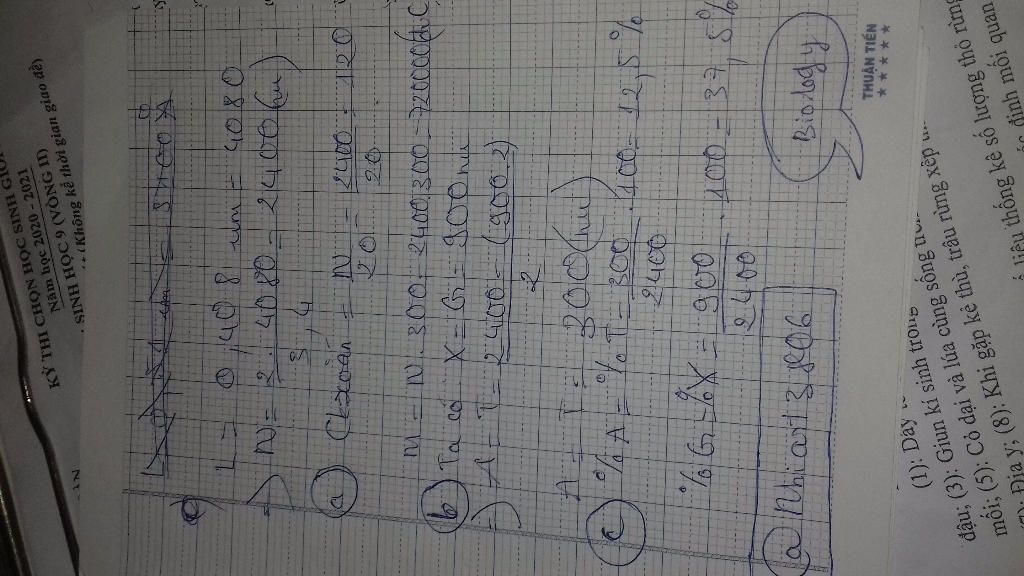 KỲ THI CHỌN HỌC SINH GIỎI
Năm học 2020 - 2021
SINH HỌC 9 (VÒNG II)
(Không kể thời gian giao đề)
L = 0,408 um = 4080
=> N = 2.4080 / 3,4 = 2400 (nu)
a) Ckxoắn = N / 20 = 2400 / 20 = 120
m = N.300 = 2400.300 = 720000 (đvC)
b) Ta có X = G = 900 nu
=> A = T = 2400 - (900.2) / 2
A = T = 300 (nu)
c) %A = %T = 300 / 2400 . 100 = 12,5%
%G = %X = 900 / 2400 . 100 = 37,5%
@ Nhicort3806
Biology
THUẬN TIẾN
(1): Dây
đậu; (3): Giun kí sinh trong
mối; (5): Cỏ dại và lúa cùng sống
Địa y; (8): Khi gặp kẻ thù, trâu rừng xếp
liệu thống kê số lượng thỏ rừng
định mối quan